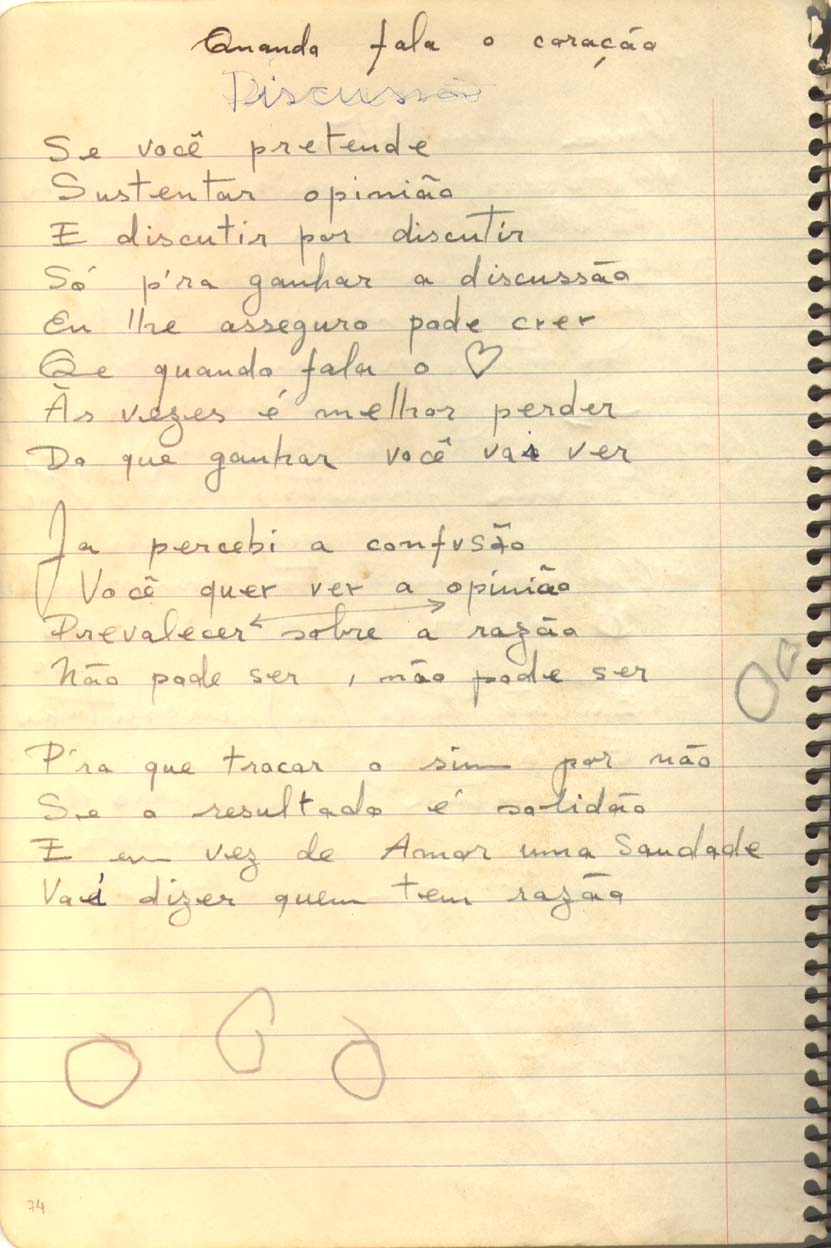 Quando fala o coração
Discussão
Se você pretende
Sustentar opinião
E discutir por discutir
Só p'ra ganhar a discussão
Eu lhe asseguro pode crer
Qe quando fala o ♡
Às vezes é melhor perder
Do que ganhar você vai ver
Ja percebi a confusão
Você quer ver a opinião
Prevalecer sobre a razão
Não pode ser, não pode ser
P'ra que trocar o sim por não
Se o resultado é solidão
E em vez de Amor uma Saudade
Vai dizer quem tem razão
74